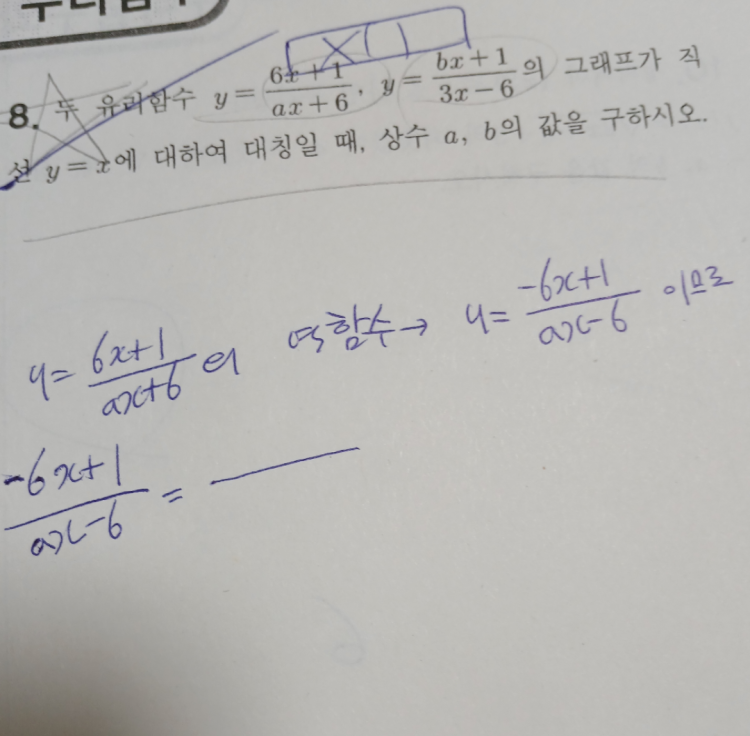 8. 두 유리함수 y = \frac{6x+1}{ax+6}, y = \frac{bx+1}{3x-6}의 그래프가 직
선 y = x에 대하여 대칭일 때, 상수 a, b의 값을 구하시오.
y = \frac{6x+1}{ax+6} 의 역함수→ y = \frac{-6x+1}{ax-6} 이므로
\frac{-6x+1}{ax-6} =